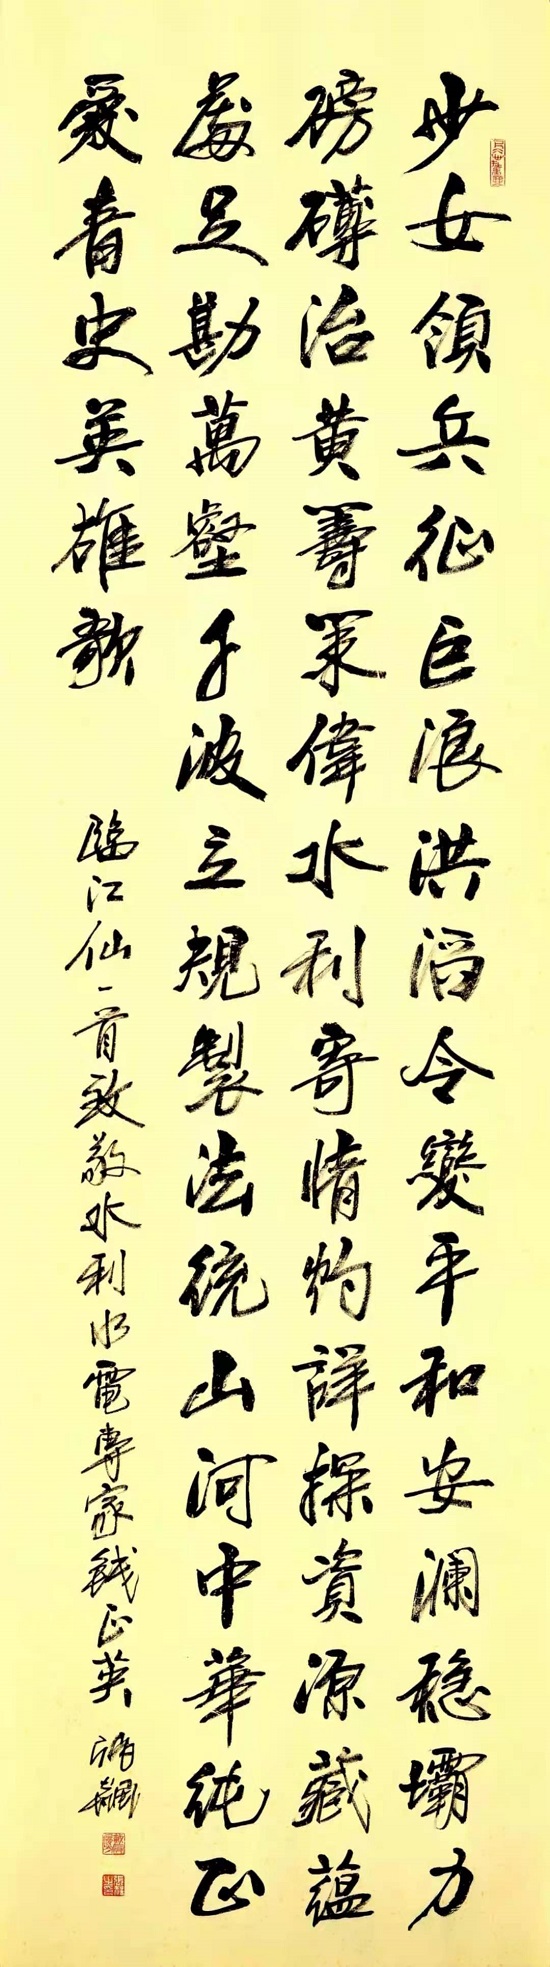 少女領兵征巨浪洪滔令變平和安瀾穩壩力
磅礴治黄籌策偉水利寄情灼詳探資源藏蘊
處足勘萬壑千波立規製法統山河中華純正
愛青史英雄歌
臨江仙一首致敬水利水電專家錢正英 張飆